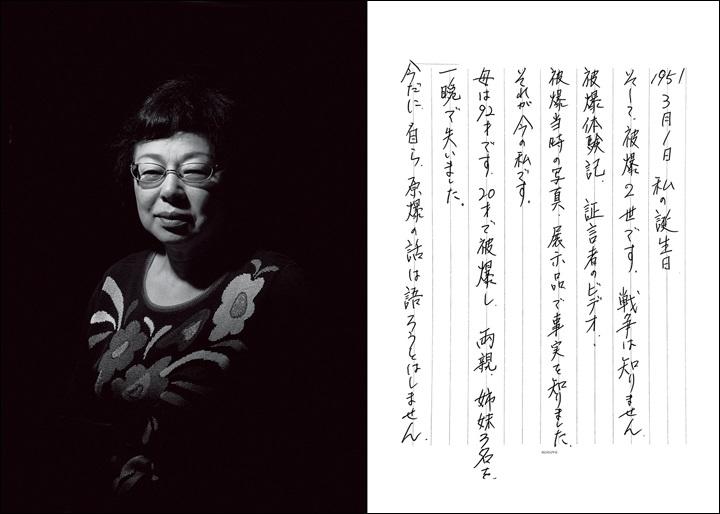 1951 3月1日 私の誕生日
そして、被爆2世です。戦争は知りません。
被爆体験記、証言者のビデオ、
被爆当時の写真、展示品で事実を知りました。
それが今の私です。
母は92才です。20才で被爆し、両親、姉妹3名を、
一晩で失いました。
今だに、自ら、原爆の話は語ろうとはしません。